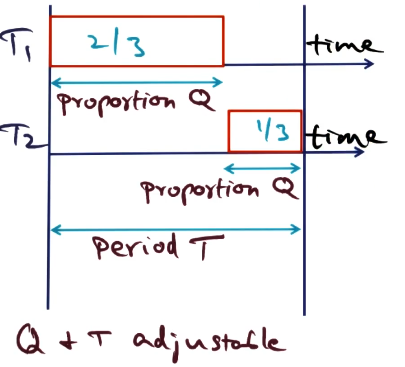 T1 2/3 time
proportion Q
T2 1/3 time
proportion Q
period T
Q + T adjustable